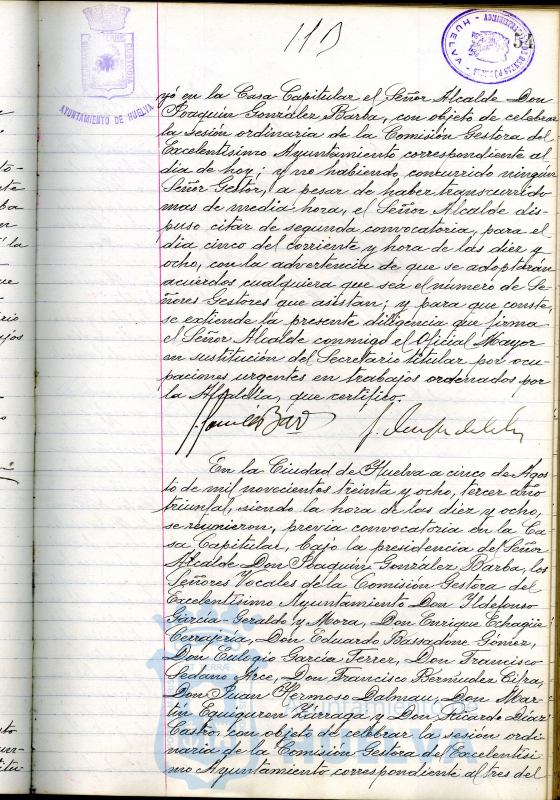 113
AYUNTAMIENTO DE HUELVA
HUELVA
yó en la Casa Capitular el Señor Alcalde Don
Joaquín González Barba, con objeto de celebrar
la sesión ordinaria de la Comisión Gestora del
Excelentísimo Ayuntamiento correspondiente al
día de hoy; y no habiendo concurrido ningún
Señor Gestor, a pesar de haber transcurrido
mas de media hora, el Señor Alcalde dis-
puso citar de segunda convocatoria, para el
día cinco del corriente y hora de las diez y
ocho, con la advertencia de que se adoptarán
acuerdos cualquiera que sea el número de Se-
ñores Gestores que asistan; y para que conste,
se extiende la presente diligencia que firma
el Señor Alcalde conmigo el Oficial Mayor
en sustitución del Secretario titular por ocu-
paciones urgentes en trabajos ordenados por
la Alcaldía, que certifico.
En la Ciudad de Huelva a cinco de Agos-
to de mil novecientos treinta y ocho, tercer año
triunfal, siendo la hora de las diez y ocho,
se reunieron, previa convocatoria en la Ca-
sa Capitular, bajo la presidencia del Señor
Alcalde Don Joaquín González Barba, los
Señores Vocales de la Comisión Gestora del
Excelentísimo Ayuntamiento Don Ildefonso
García-Geraldo y Mora, Don Enrique Echagüe
Cerrajería, Don Eduardo Bassadone Gómez,
Don Eulogio García Ferrer, Don Francisco
Sedano Arce, Don Francisco Bermúdez Cifra,
Don Juan Hermoso Dalmau, Don Mar-
tín Equiguren Zirraga y Don Ricardo Díaz
Castro, con objeto de celebrar la sesión ordi-
naria de la Comisión Gestora del Excelentísi-
mo Ayuntamiento correspondiente al tres del